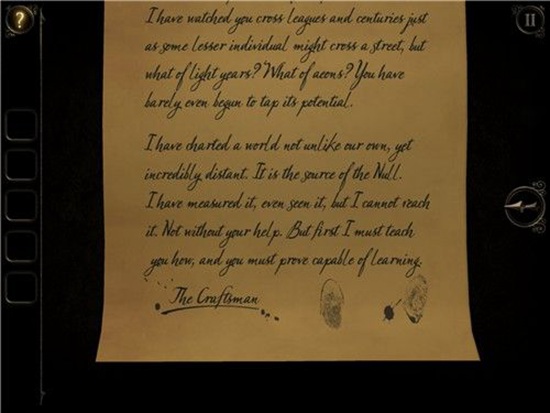 I have watched you cross leagues and centuries just
as some lesser individual might cross a street, but
what of light years? What of aeons? You have
barely even begun to tap its potential.
I have charted a world not unlike our own, yet
incredibly distant. It is the source of the Null.
I have measured it, even seen it, but I cannot reach
it. Not without your help. But first I must teach
you how, and you must prove capable of learning.
The Craftsman
?